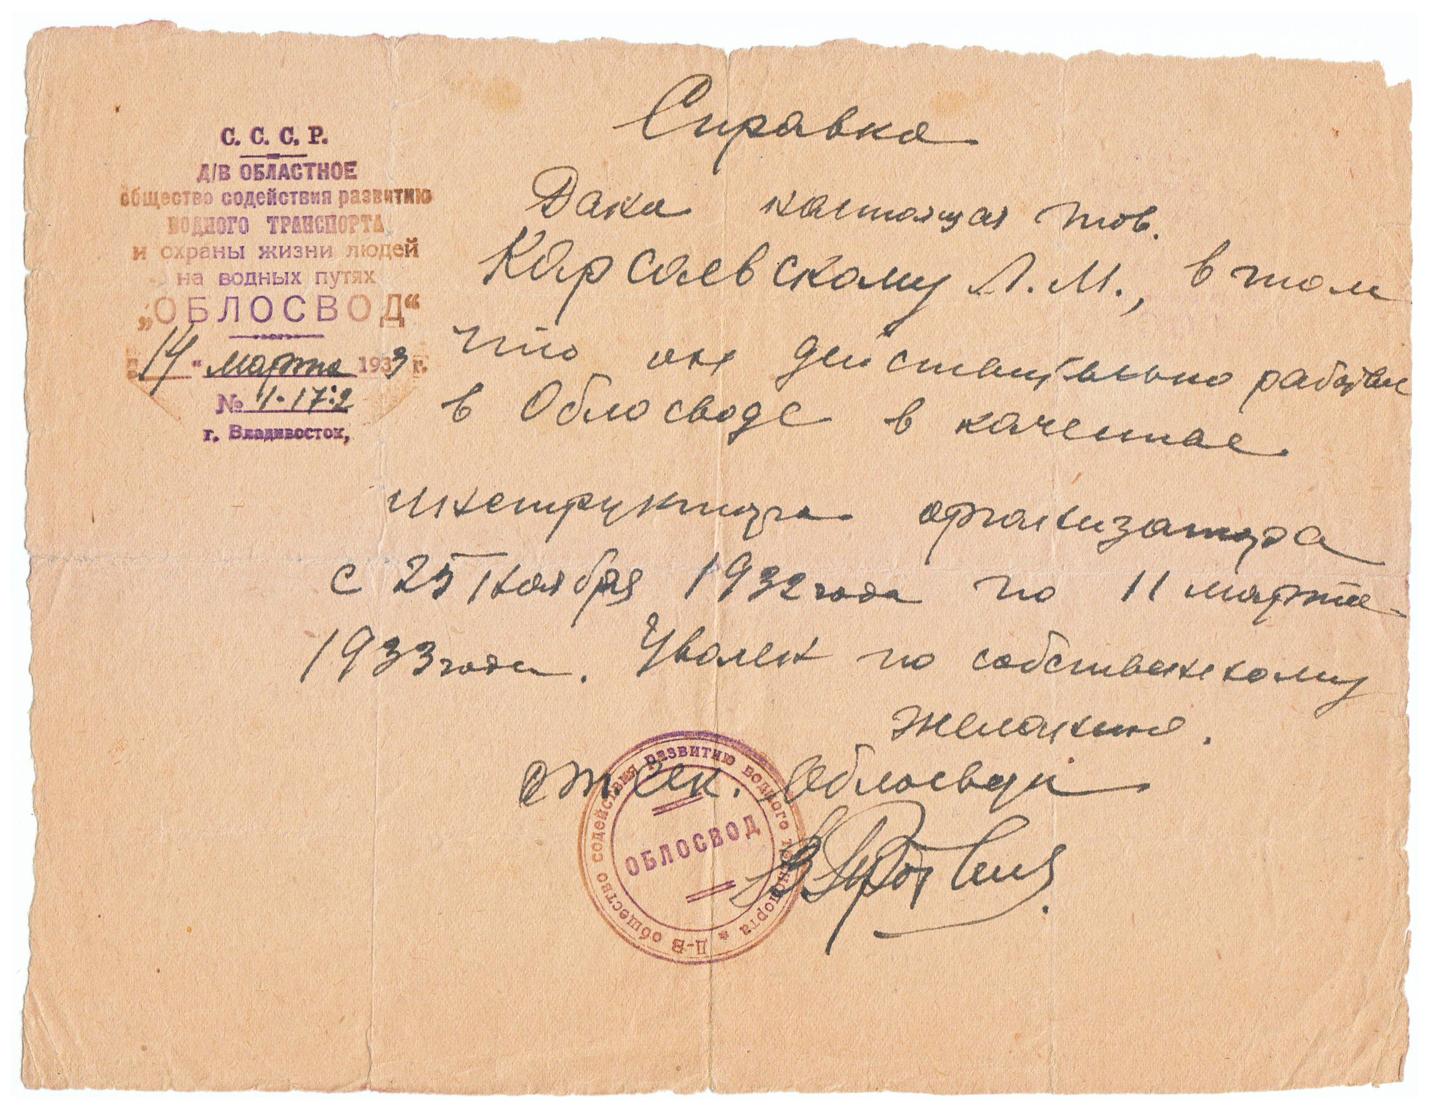 С. С. С. Р.
Д/В ОБЛАСТНОЕ
общество содействия развитию
ВОДНОГО ТРАНСПОРТА
и охраны жизни людей
на водных путях
„ОБЛОСВОД“
„14“ марта 1933 г.
№ 1-17:2
г. Владивосток,
Справка
Дана настоящая тов.
Карсаевскому Л. М., в том
что он действительно работал
в Облосводе в качестве
инструктора организатора
с 25 Ноября 1932 года по 11 марта
1933 года. Уволен по собственному
желанию.
от. Сек. Облосвода
Д-В общество содействия развитию водного транспорта *
ОБЛОСВОД